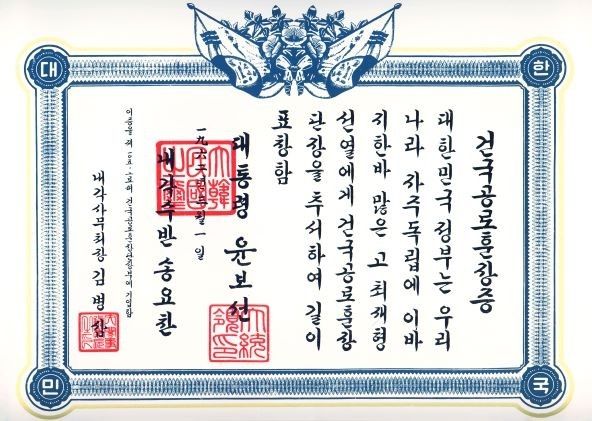 대 한
건국공로훈장증
대한민국 정부는 우리
나라 자주독립에 이바
지한바 많은 고 최재형
선열에게 건국공로훈장
단장을 추서하여 길이
표창함
대통령 윤보선
大韓民國之璽
大統領印
一九六二년 三월 一일
내각수반 송요찬
이증을 제 호로써 건국공로훈장부에 기입함
내각사무처장 김병삼
민 국